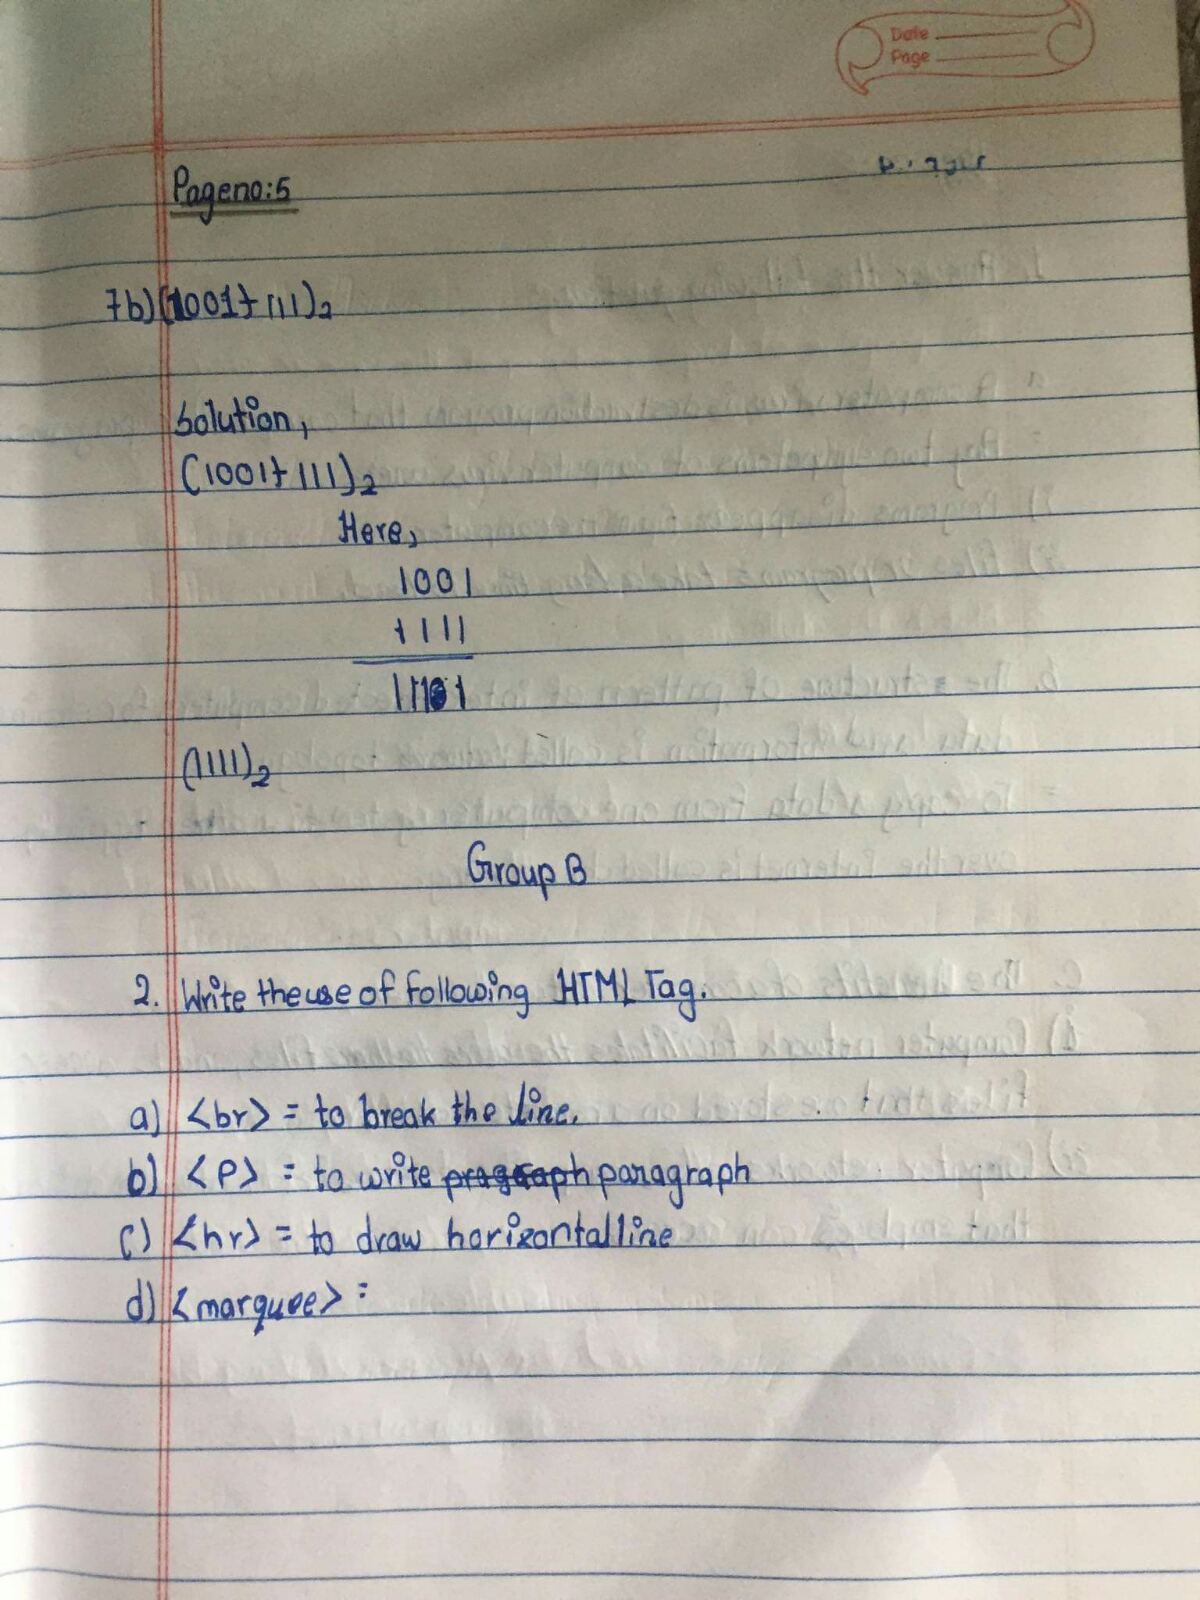 Date
Page
Pageno:5
7b) (1001+111)₂
Solution,
(1001+111)₂
Here,
1001
+111
(1111)₂
Group B
2. Write the use of following HTML Tag.
a) <br> = to break the line.
b) <P> = to write paragraph
c) <hr> = to draw horizontal line
d) <marquee> =